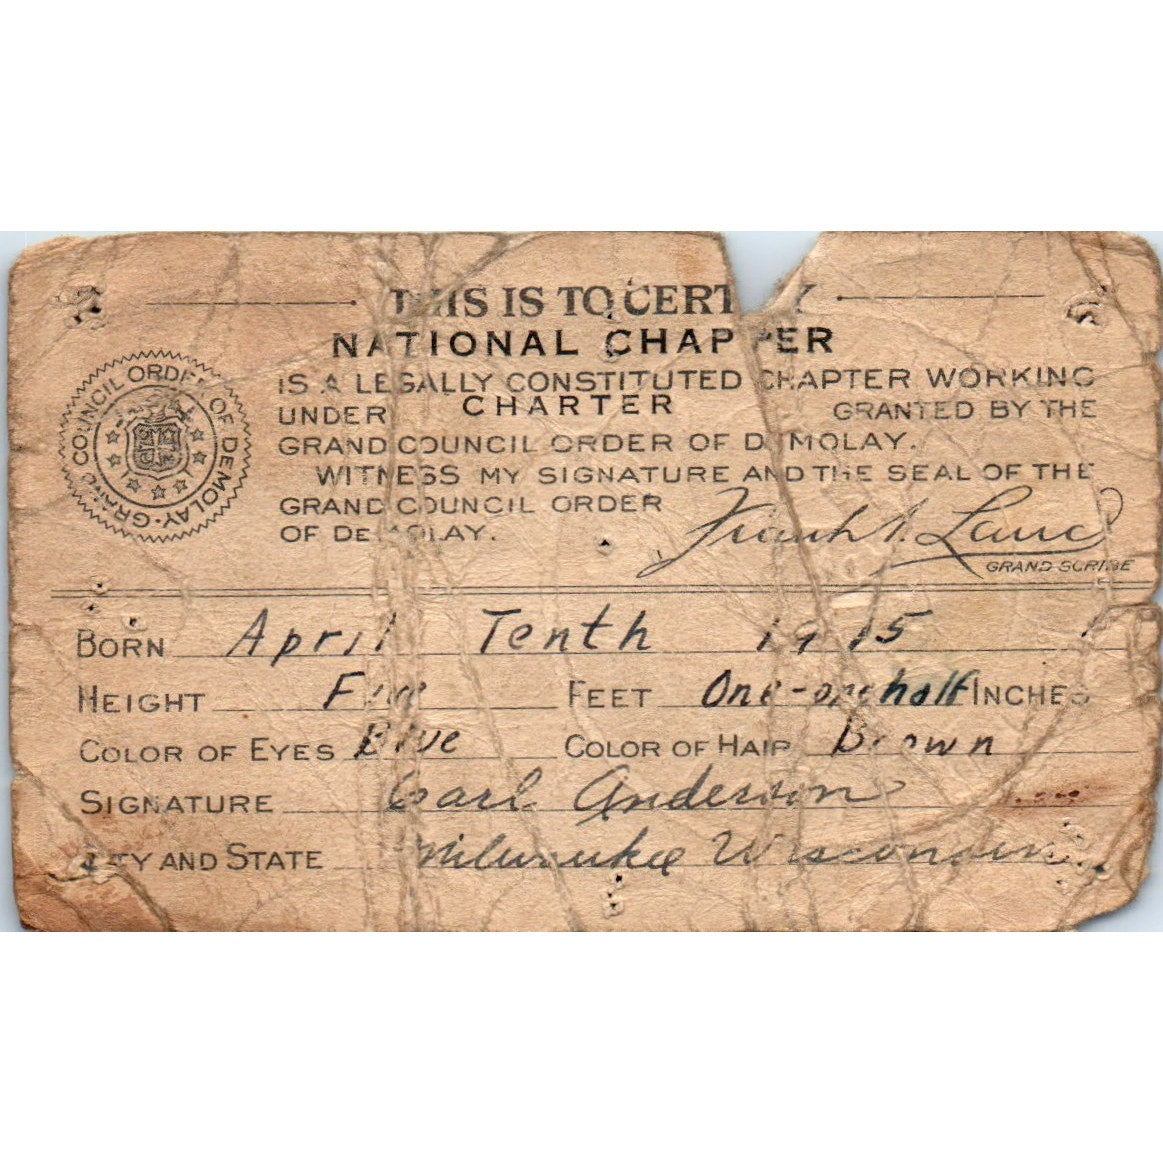 THIS IS TO CERTIFY
NATIONAL CHAPTER
IS A LEGALLY CONSTITUTED CHAPTER WORKING
UNDER CHARTER GRANTED BY THE
GRAND COUNCIL ORDER OF DEMOLAY.
WITNESS MY SIGNATURE AND THE SEAL OF THE
GRAND COUNCIL ORDER
OF DEMOLAY.
Frank S. Land
GRAND SCRIBE
GRAND COUNCIL ORDER OF DEMOLAY
BORN April Tenth 1915
HEIGHT Five FEET One-one half INCHES
COLOR OF EYES Blue COLOR OF HAIR Brown
SIGNATURE Carl Anderson
CITY AND STATE Milwaukee Wisconsin